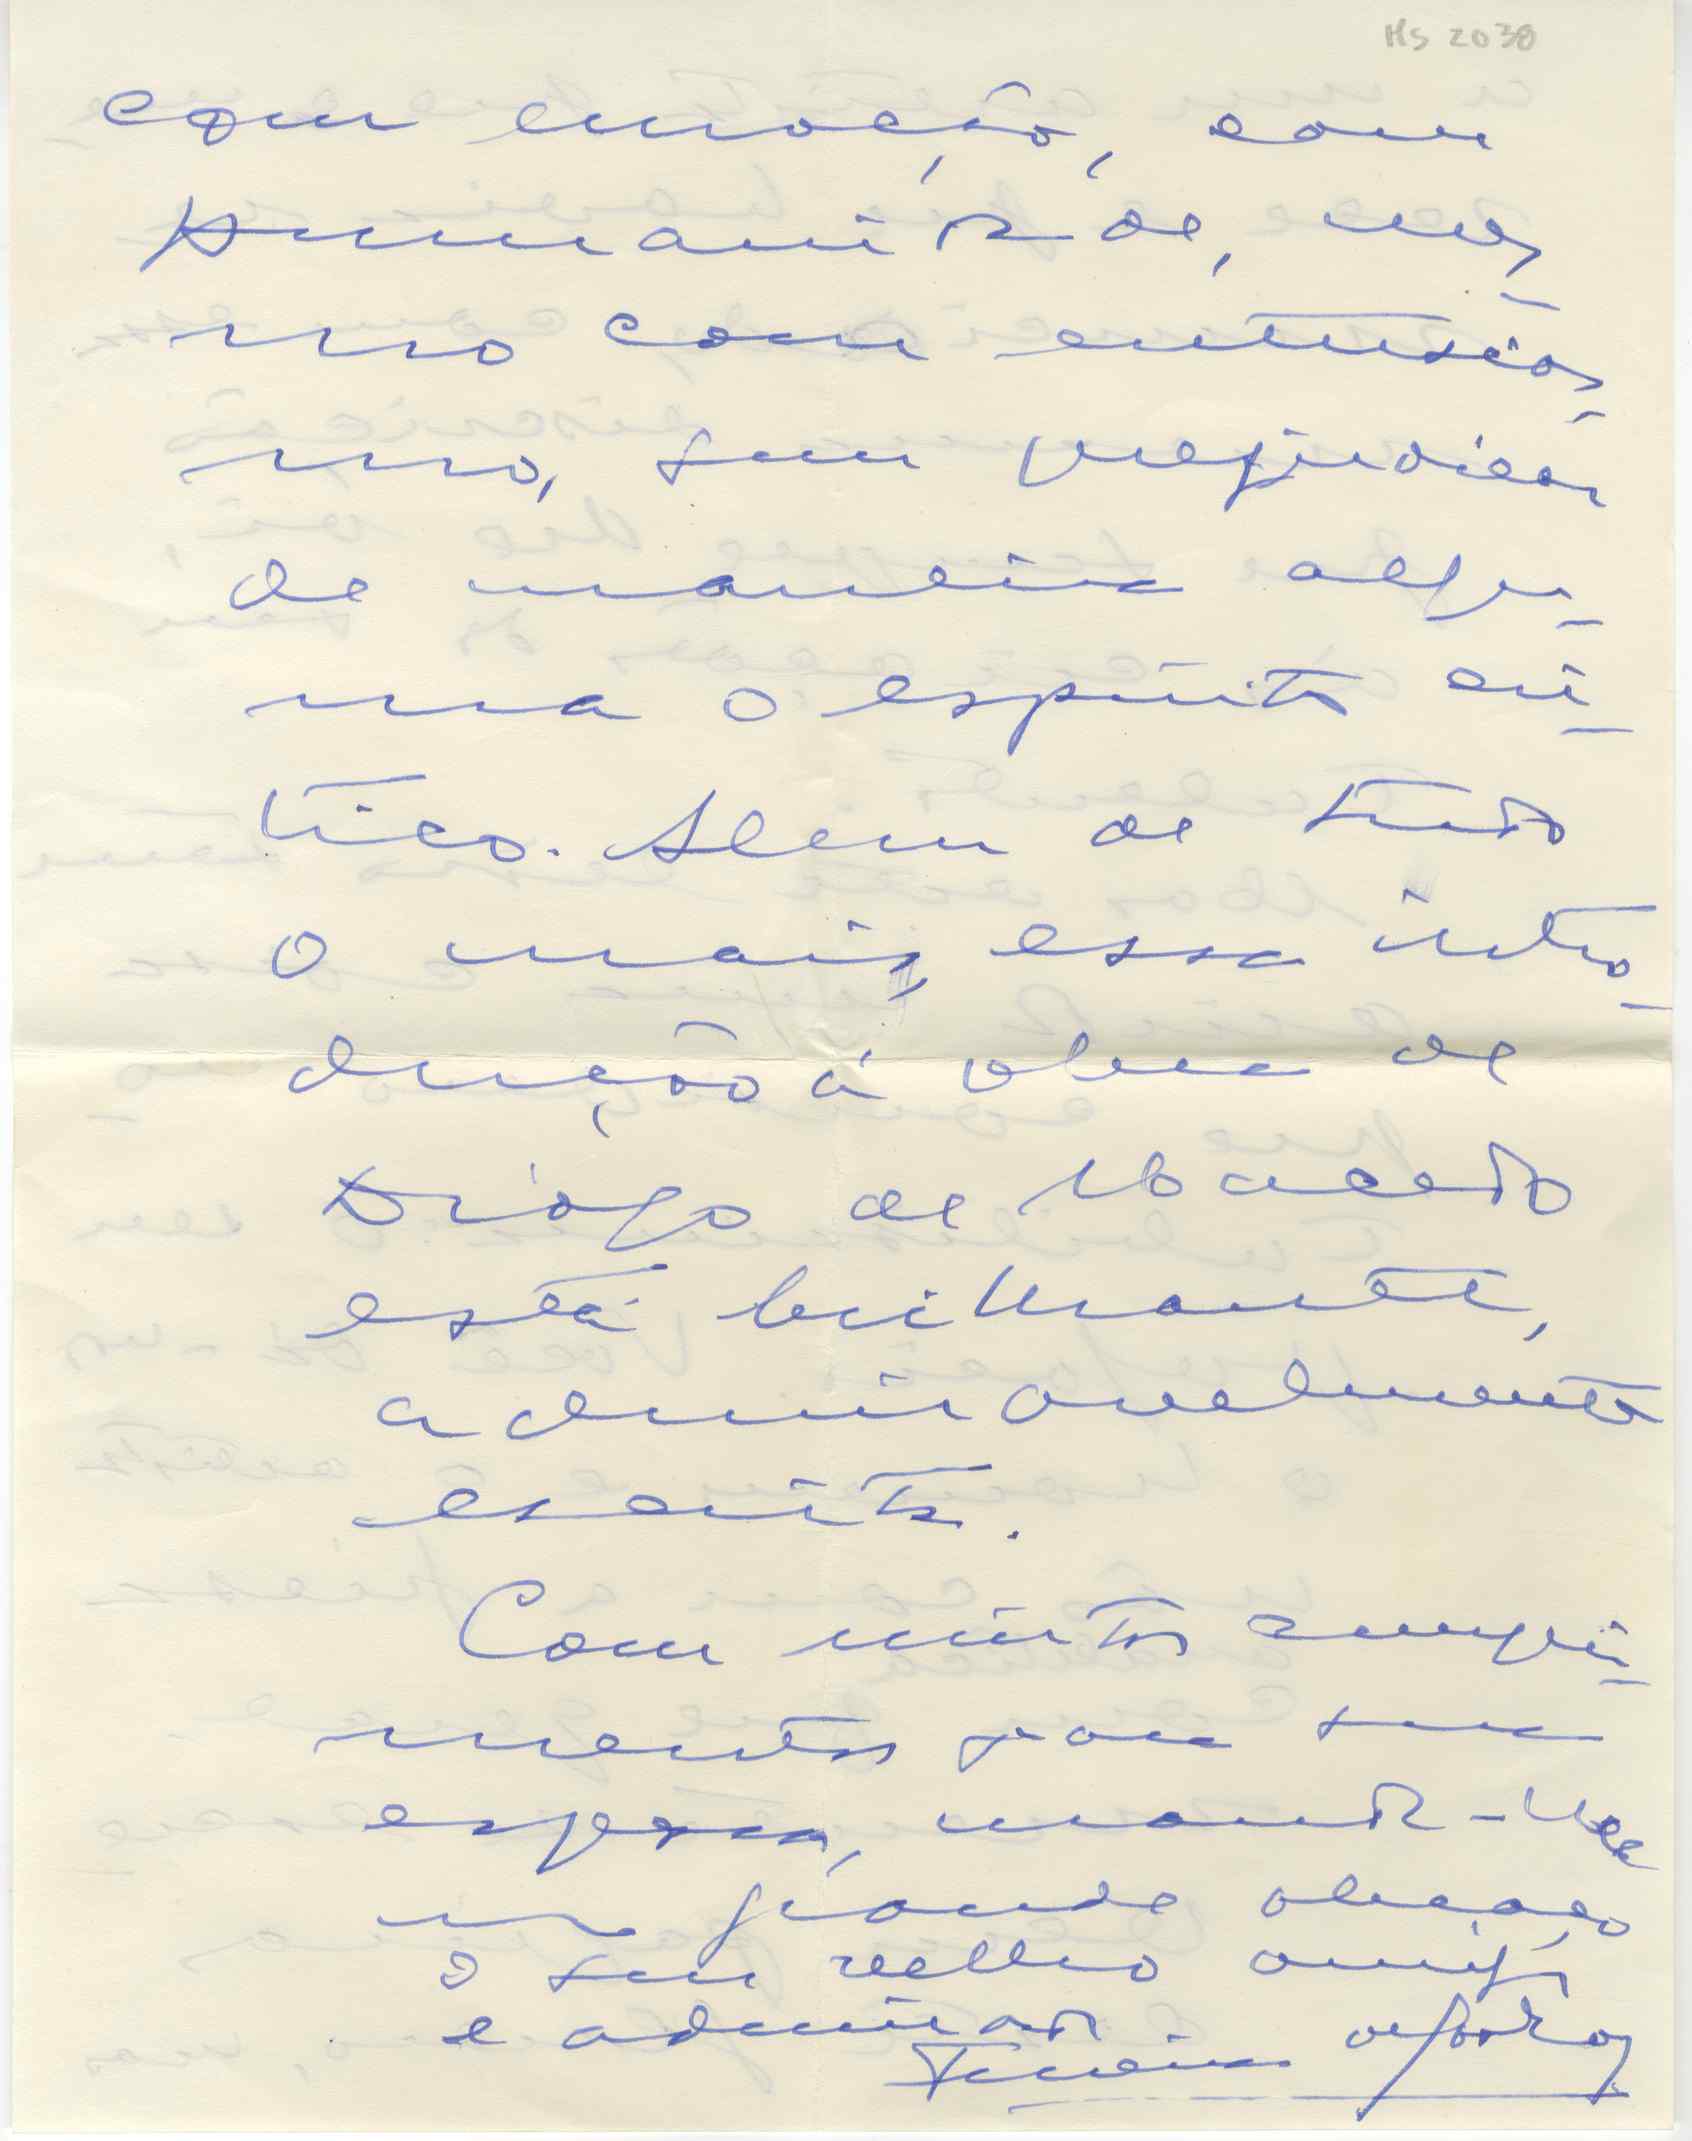 Ms 2038
com emoção, com
humanidade, mes_
mo com entusias_
mo, sem prejudicar
de maneira algu_
ma o espirito cri_
tico. Alem de tudo
o mais, essa intro_
dução á obra de
Diogo de Macedo
está brilhante,
admiravelmente
escrita.
Com muitos cumpri_
mentos para sua
esposa, manda-lhe
um grande abraço
o seu velho amigo
e admirador
Ferreira de Castro